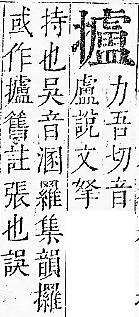 攎
力吾切音
盧說文拏
持也吳音溷羅集韻攞
或作攎舊註張也誤